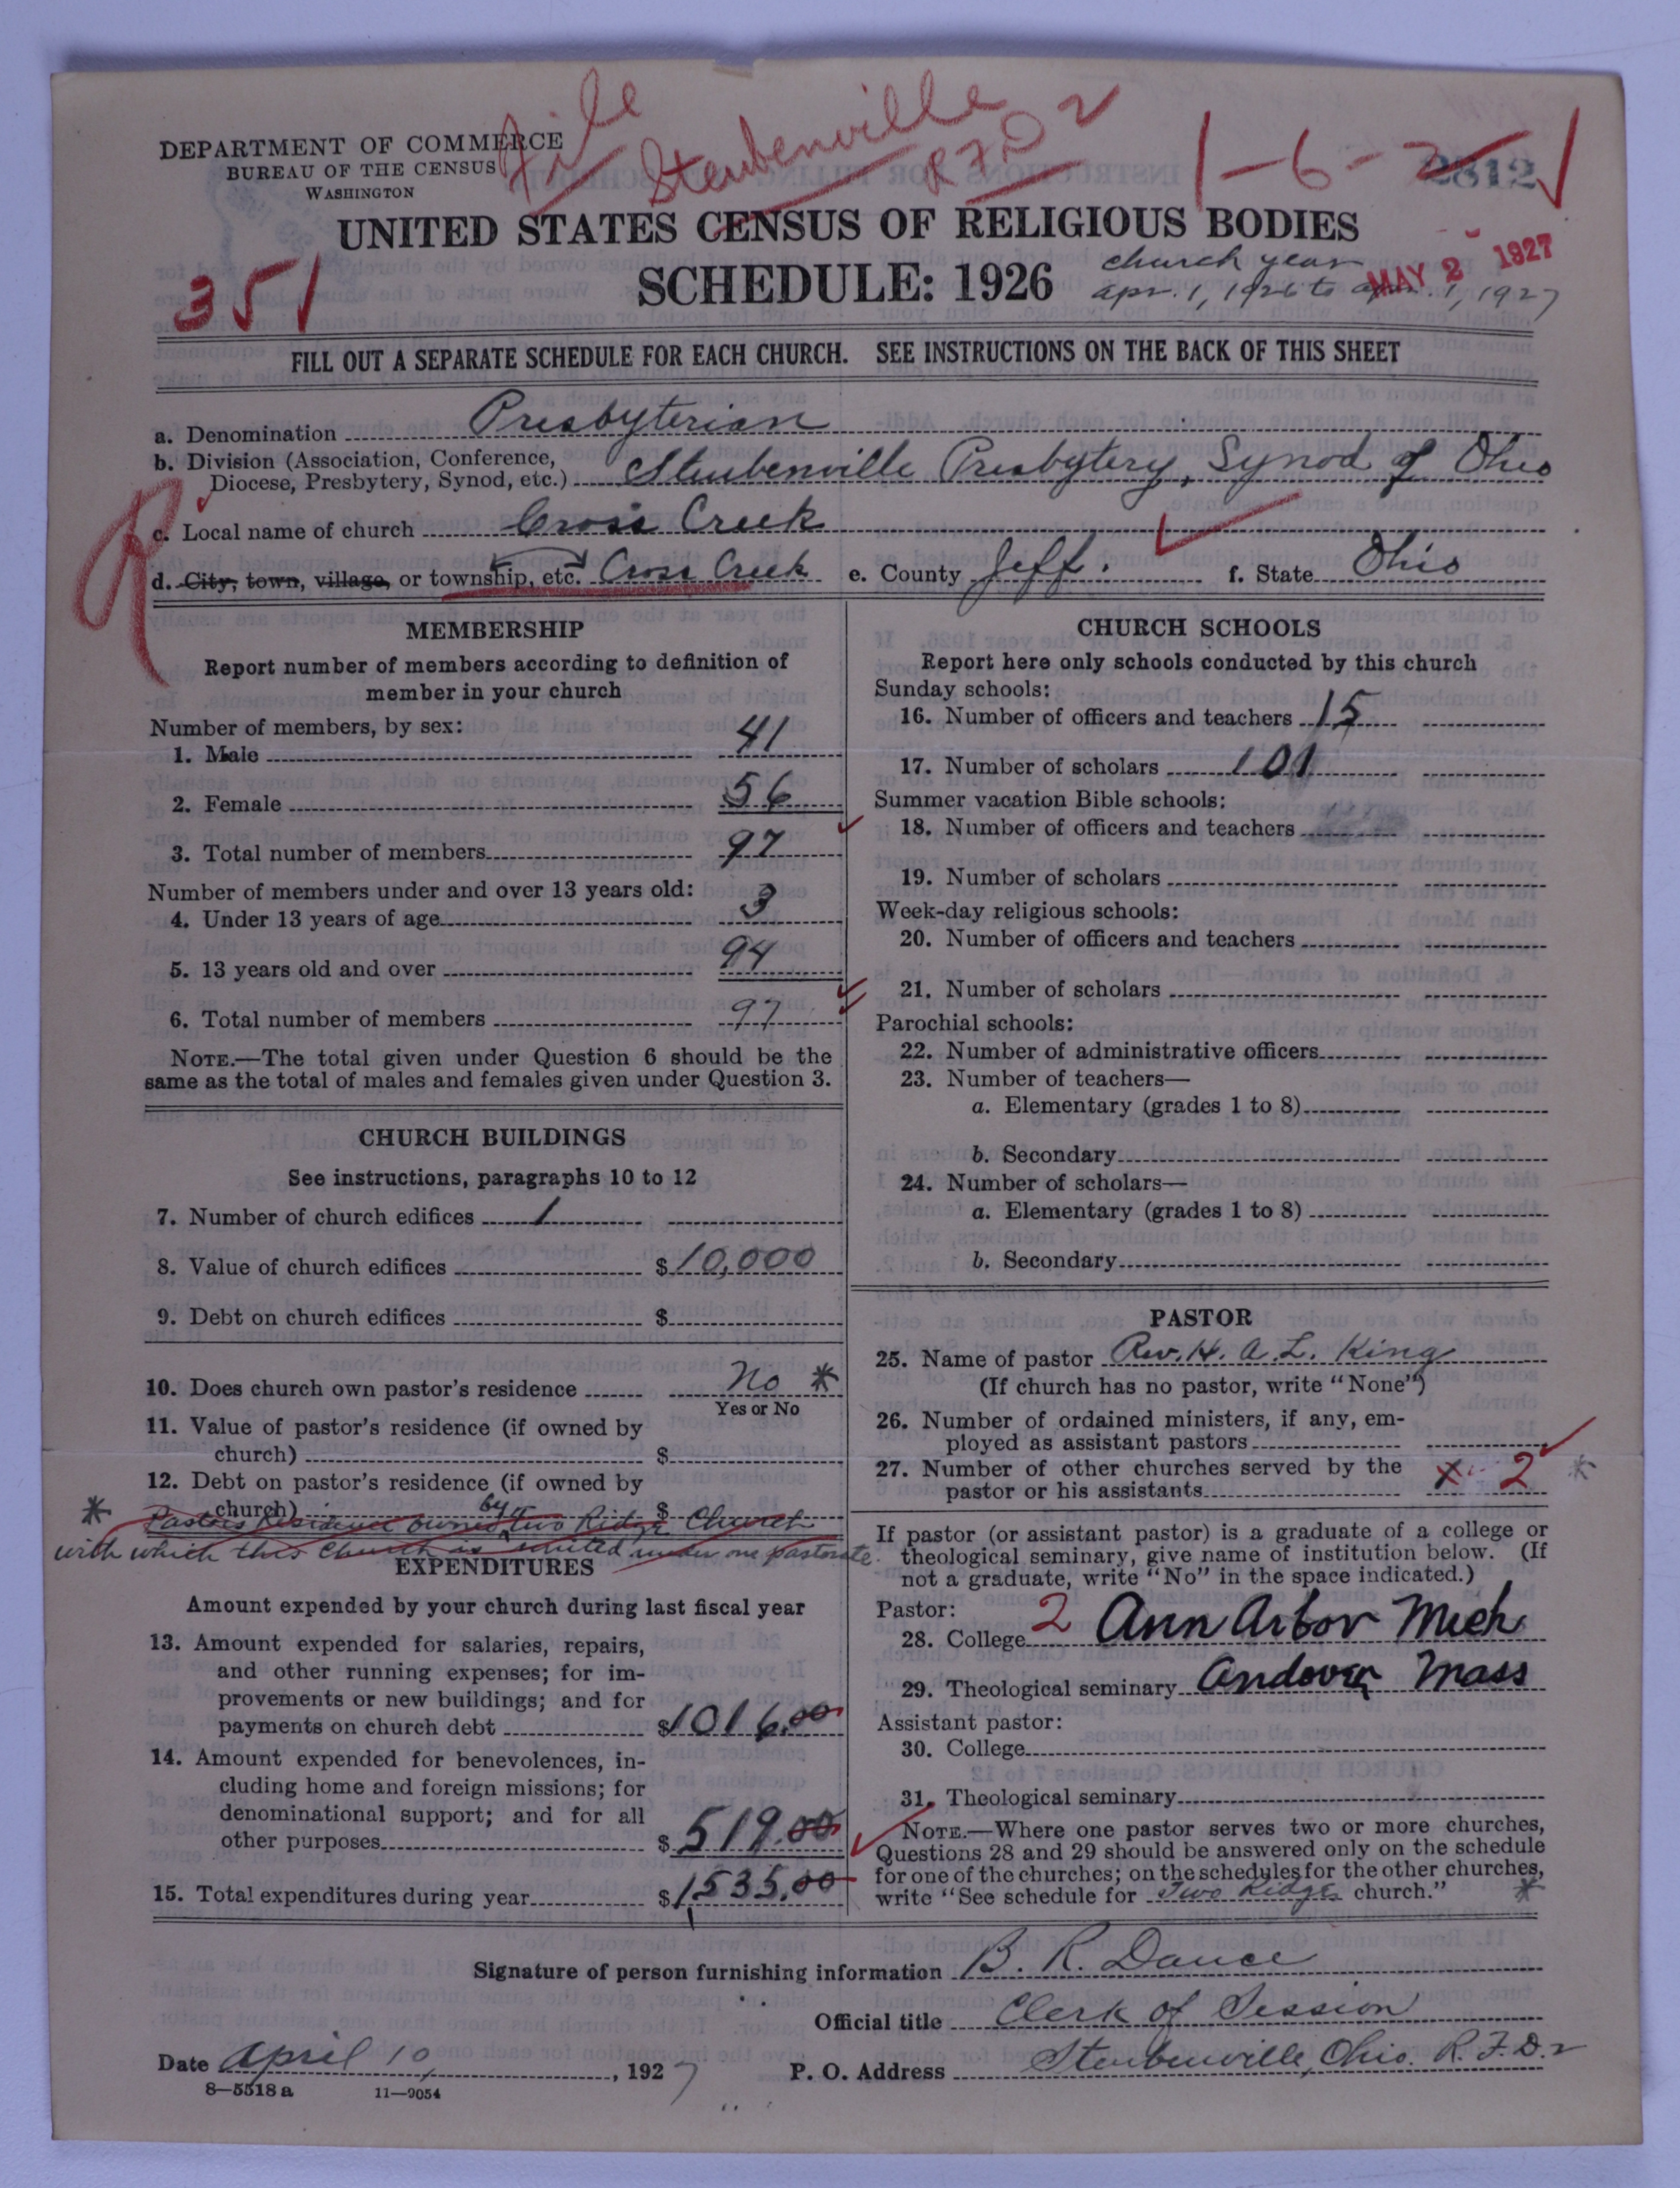 File Steubenville RFD 2
DEPARTMENT OF COMMERCE
BUREAU OF THE CENSUS
WASHINGTON
1-6-2
2812
UNITED STATES CENSUS OF RELIGIOUS BODIES
351
SCHEDULE: 1926
church year
apr. 1, 1926 to apr. 1, 1927
MAY 2 1927
FILL OUT A SEPARATE SCHEDULE FOR EACH CHURCH. SEE INSTRUCTIONS ON THE BACK OF THIS SHEET
a. Denomination Presbyterian
b. Division (Association, Conference,
Diocese, Presbytery, Synod, etc.) Steubenville Presbytery, Synod of Ohio
R
c. Local name of church Cross Creek
d. City, town, village, or township, etc. Cross Creek e. County Jeff. f. State Ohio
MEMBERSHIP
Report number of members according to definition of
member in your church
Number of members, by sex:
1. Male 41
2. Female 56
3. Total number of members 97
Number of members under and over 13 years old:
4. Under 13 years of age 3
5. 13 years old and over 94
6. Total number of members 97
NOTE.—The total given under Question 6 should be the
same as the total of males and females given under Question 3.
CHURCH BUILDINGS
See instructions, paragraphs 10 to 12
7. Number of church edifices 1
8. Value of church edifices $10,000
9. Debt on church edifices $
10. Does church own pastor's residence No *
Yes or No
11. Value of pastor's residence (if owned by
church) $
12. Debt on pastor's residence (if owned by
church) $
* Pastors residence owned by Two Ridge Church
with which this church is united under one pastorate.
EXPENDITURES
Amount expended by your church during last fiscal year
13. Amount expended for salaries, repairs,
and other running expenses; for im-
provements or new buildings; and for
payments on church debt $1016.00
14. Amount expended for benevolences, in-
cluding home and foreign missions; for
denominational support; and for all
other purposes $519.00
15. Total expenditures during year $1535.00
CHURCH SCHOOLS
Report here only schools conducted by this church
Sunday schools:
16. Number of officers and teachers 15
17. Number of scholars 101
Summer vacation Bible schools:
18. Number of officers and teachers
19. Number of scholars
Week-day religious schools:
20. Number of officers and teachers
21. Number of scholars
Parochial schools:
22. Number of administrative officers
23. Number of teachers—
a. Elementary (grades 1 to 8)
b. Secondary
24. Number of scholars—
a. Elementary (grades 1 to 8)
b. Secondary
PASTOR
25. Name of pastor Rev. H. A. L. King
(If church has no pastor, write "None")
26. Number of ordained ministers, if any, em-
ployed as assistant pastors
27. Number of other churches served by the
pastor or his assistants x 2 *
If pastor (or assistant pastor) is a graduate of a college or
theological seminary, give name of institution below. (If
not a graduate, write "No" in the space indicated.)
Pastor:
28. College 2 Ann Arbor Mich
29. Theological seminary Andover Mass
Assistant pastor:
30. College
31. Theological seminary
NOTE.—Where one pastor serves two or more churches,
Questions 28 and 29 should be answered only on the schedule
for one of the churches; on the schedules for the other churches,
write "See schedule for Two Ridges church." *
Signature of person furnishing information B. R. Dance
Official title Clerk of Session
Date April 10, 1927 P. O. Address Steubenville, Ohio. R.F.D. 2
8—5518 a 11—9054